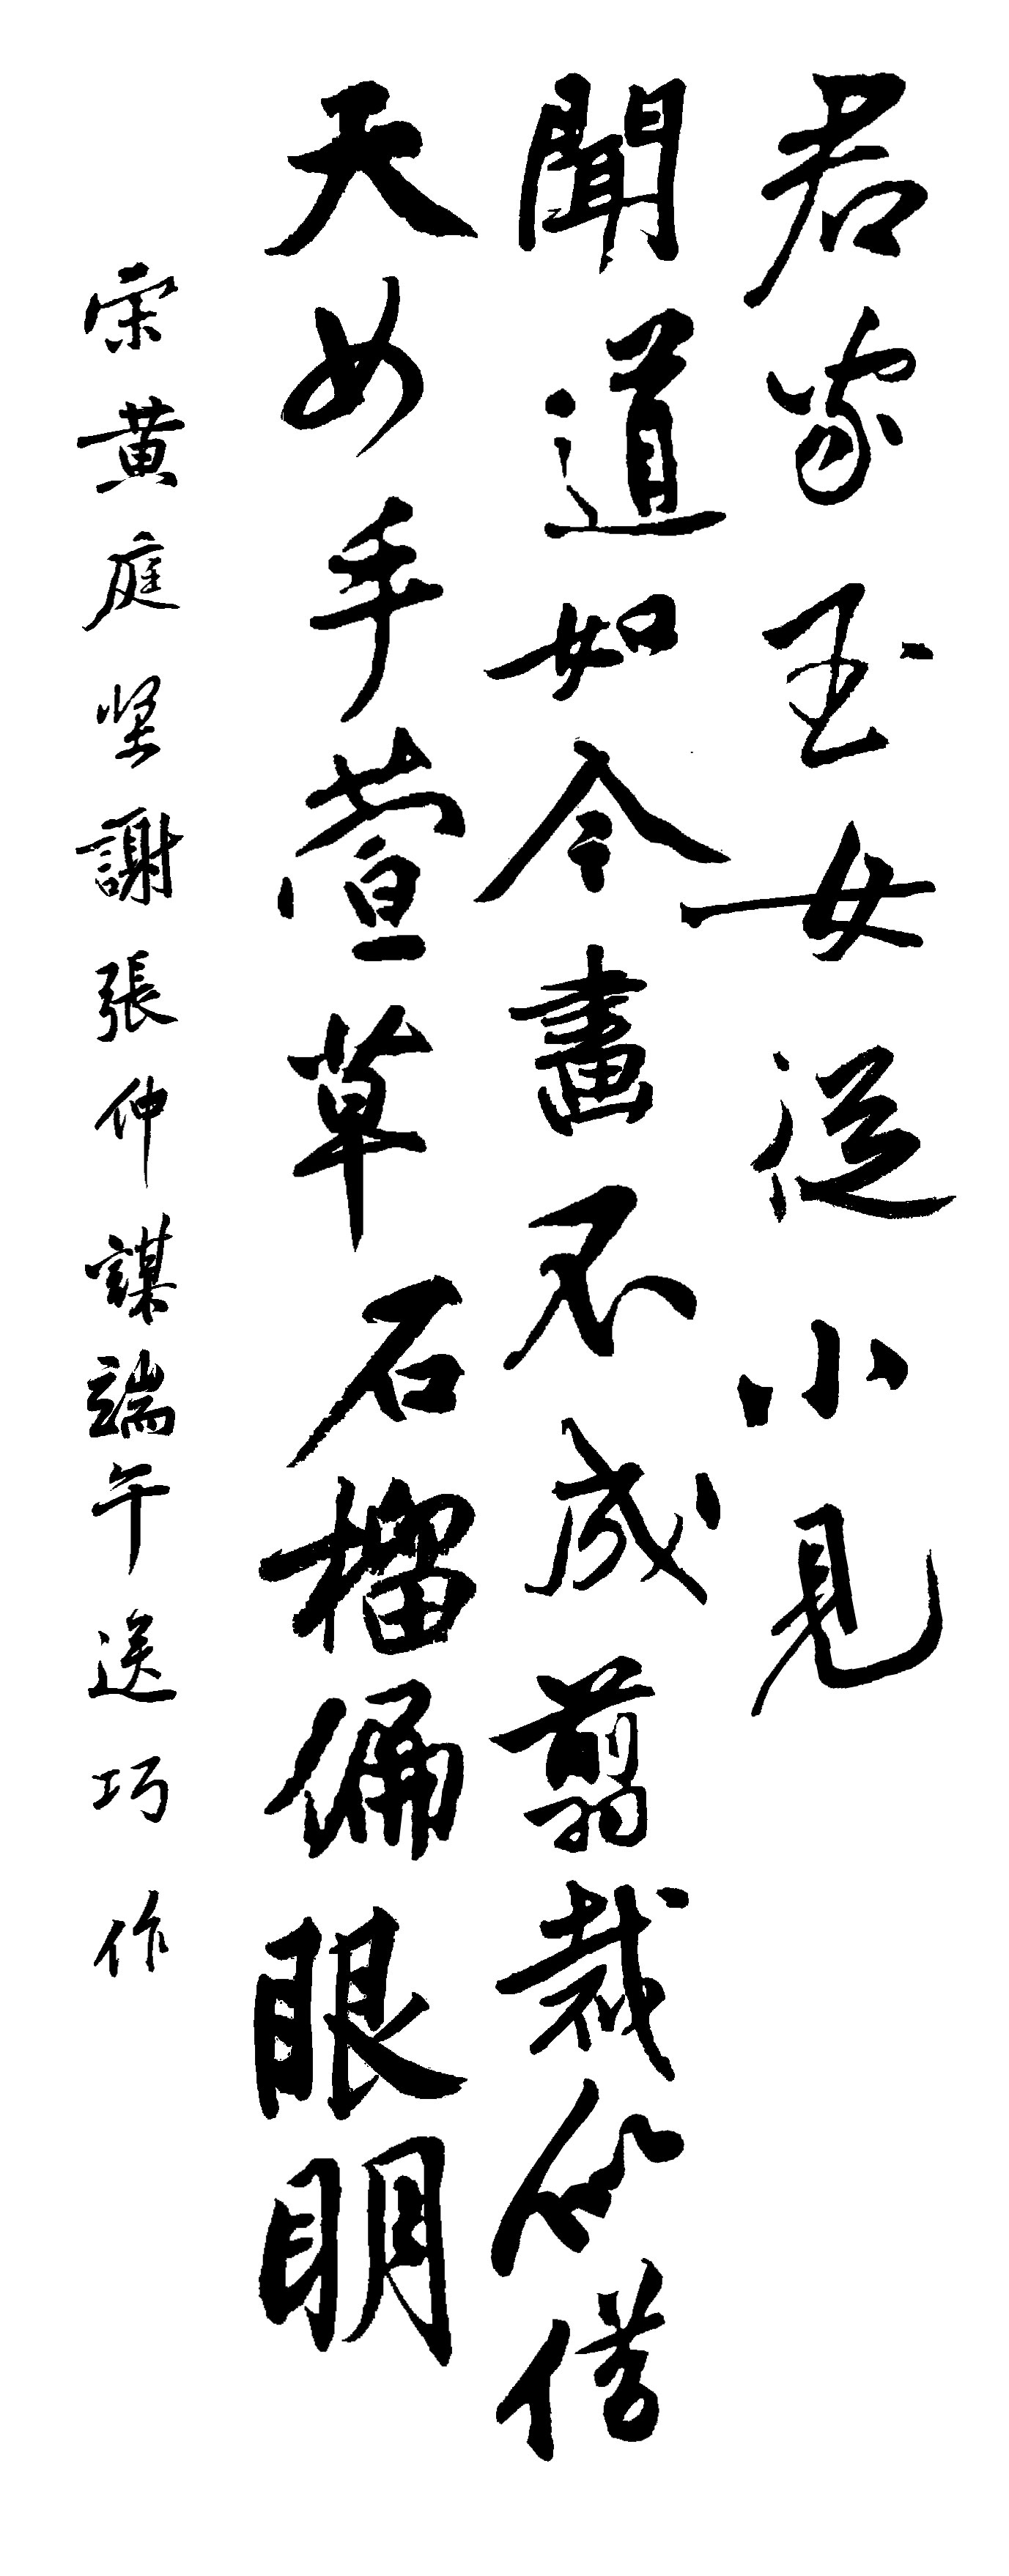 君家玉女從小見
聞道如今畫不成翦裁似借
天女手萱草石榴偏眼明
宋黄庭坚謝張仲謀端午送巧作